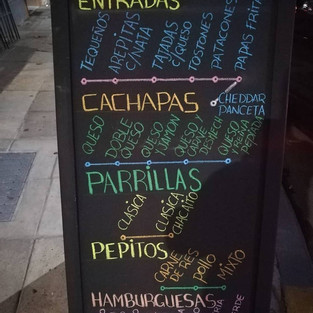 ENTRADAS
TEQUEÑOS
AREPITAS
C/NATA
TAJADAS
C/QUESO
TOSTONES
PATACONES
PAPAS FRITAS
CHEDDAR
PANCETA
CACHAPAS
QUESO
DOBLE
QUESO
QUESO
Y JAMON
QUESO Y
CARNE
DESMECH
QUESO
PERNIL
PARRILLAS
CLASICA
CLASICA
CHACAITO
PEPITOS
CARNE
DE RES
pollo
MIXTO
HAMBURGUESAS